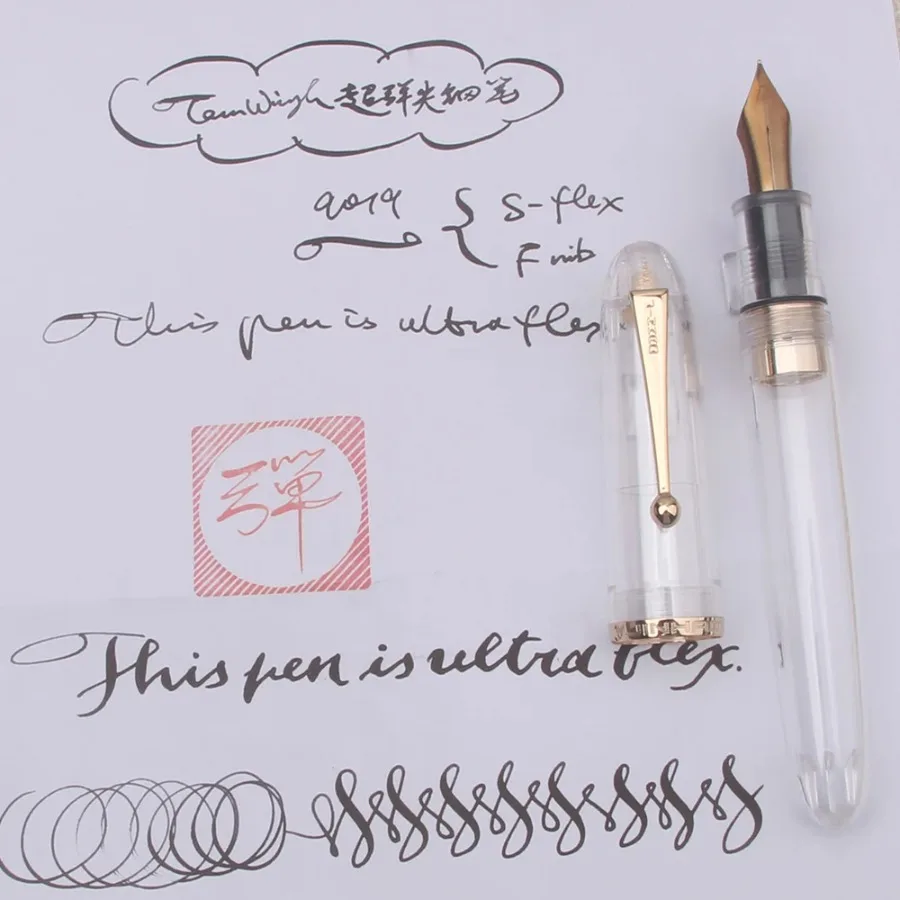 超弹尖钢笔
9019 { S-flex
F nib
This pen is ultra flex
彈
This pen is ultra flex.